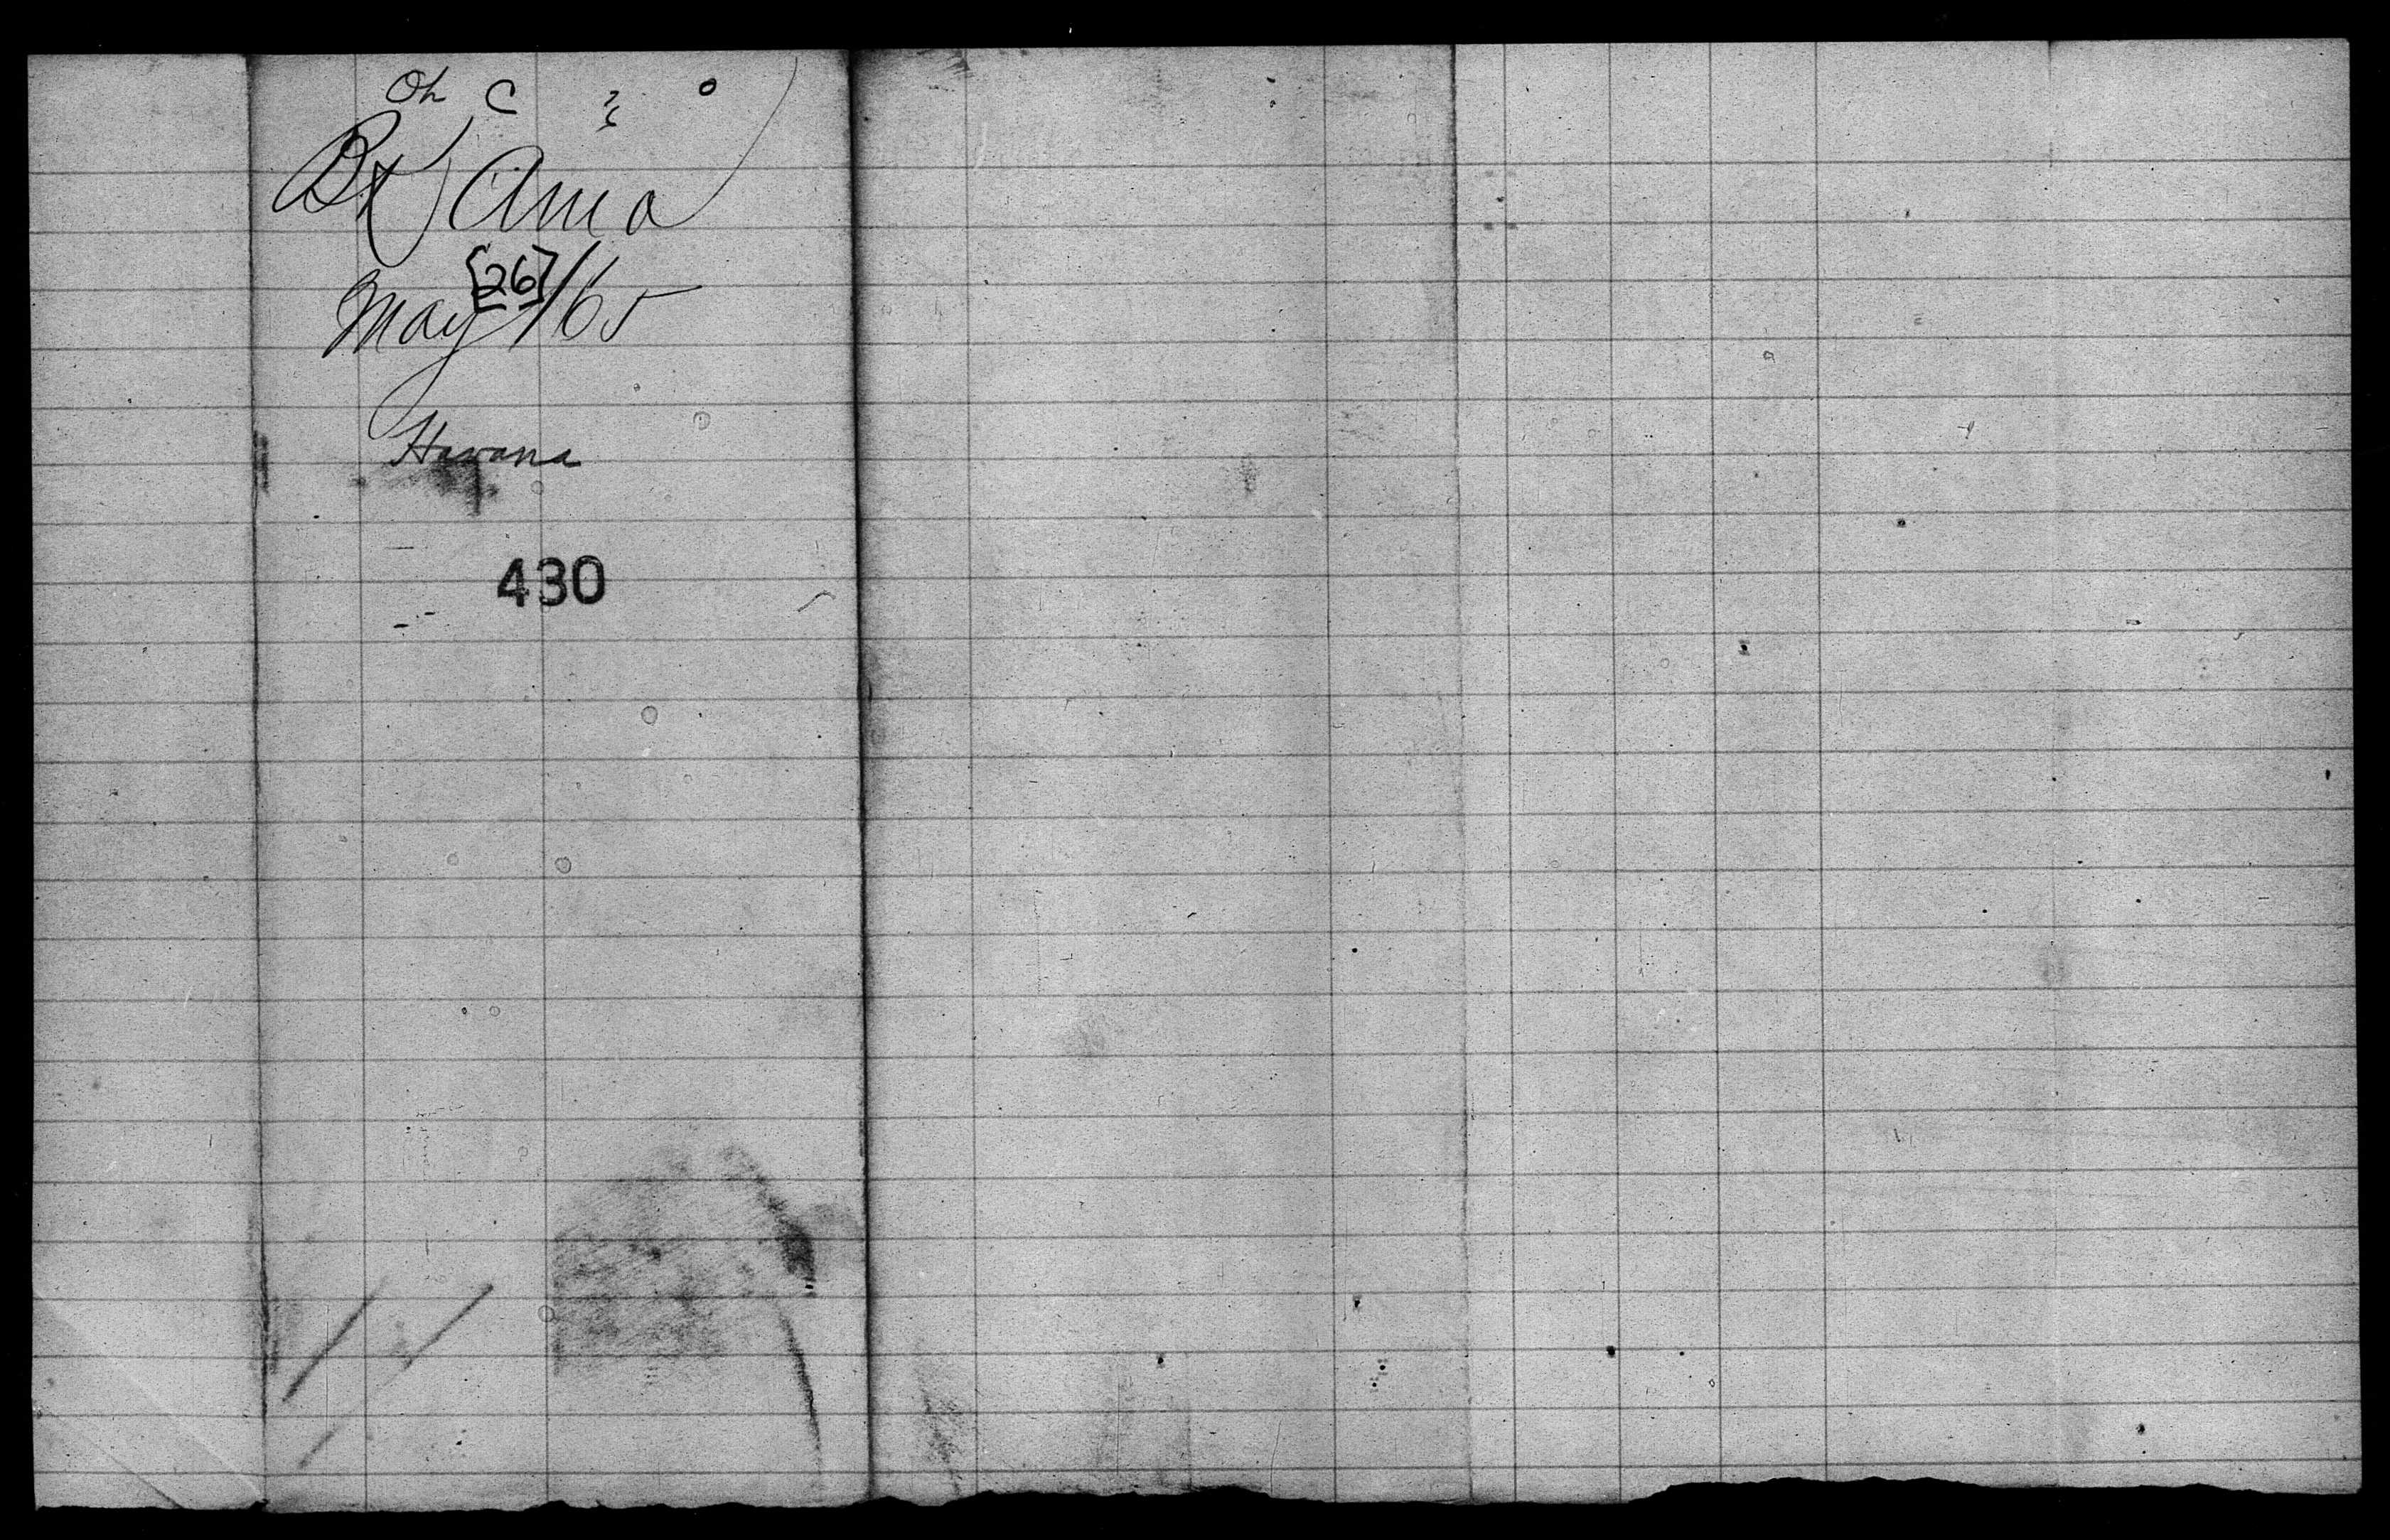 Bk Ama
May [26]/65
Havana
430